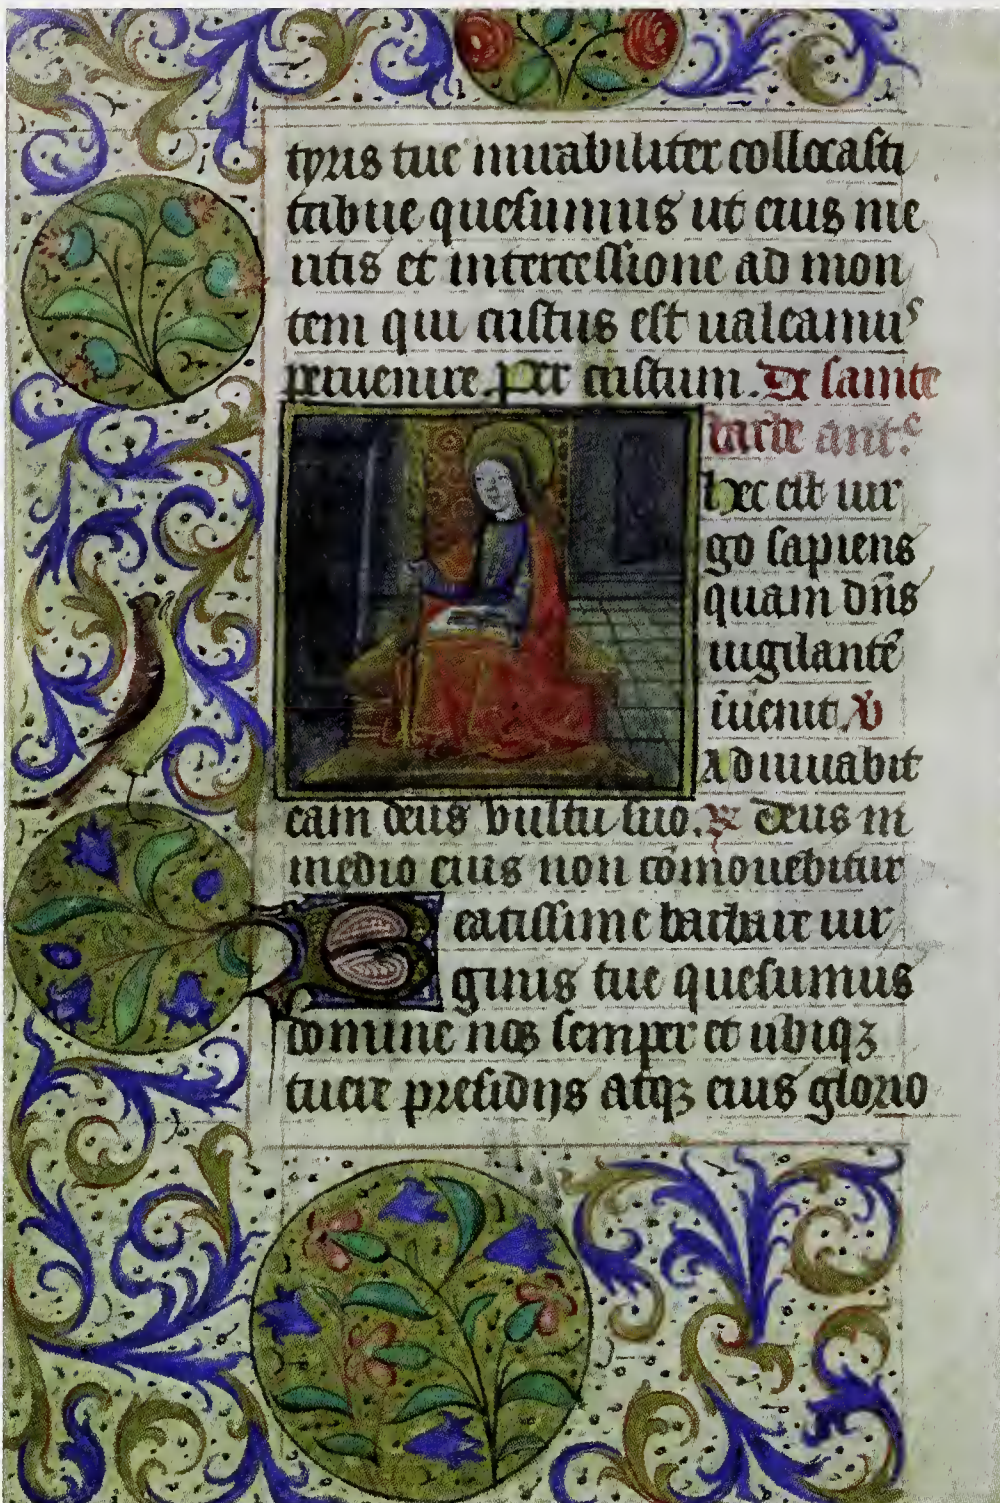 tyris tue mirabiliter collocasti
tribue quesumus ut eius me
ritis et intercessione ad mon
tem qui cristus est ualeamus
peruenire per cristum. De sainte
barbe antᵉ
hec est uir
go sapiens
quam dn̄s
uigilantē
īuenit ℣
Adiuuabit
eam deus vultu suo. ℟ Deus in
medio eius non cōmouebitur
Beatissime barbare uir
ginis tue quesumus
domine nos semper et ubiqꝫ
tuere presidijs atqꝫ eius glorio